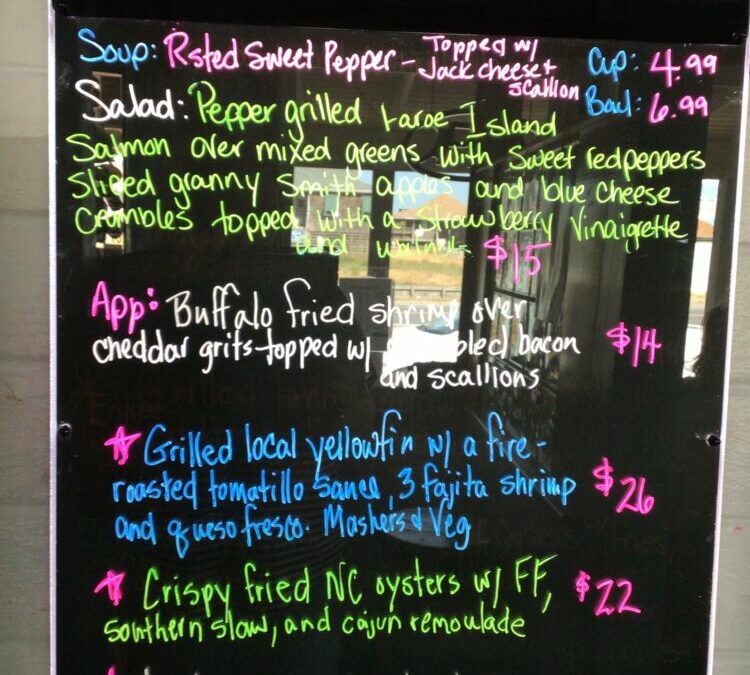 Soup: Rsted Sweet Pepper - Topped w/
Jack cheese +
scallion
Cup: 4.99
Bowl: 6.99
Salad: Pepper grilled Faroe Island
Salmon over mixed greens with sweet red peppers
Sliced granny Smith apples and blue cheese
Crumbles topped with a Strawberry Vinaigrette
and walnuts $15
App: Buffalo fried shrimp over
cheddar grits topped w/ bacon $14
and scallions
☆ Grilled local yellowfin w/ a fire-
roasted tomatillo sauce, 3 fajita shrimp $26
and queso fresco. Mashers & Veg
☆ Crispy fried NC oysters w/ FF, $22
southern slaw, and cajun remoulade